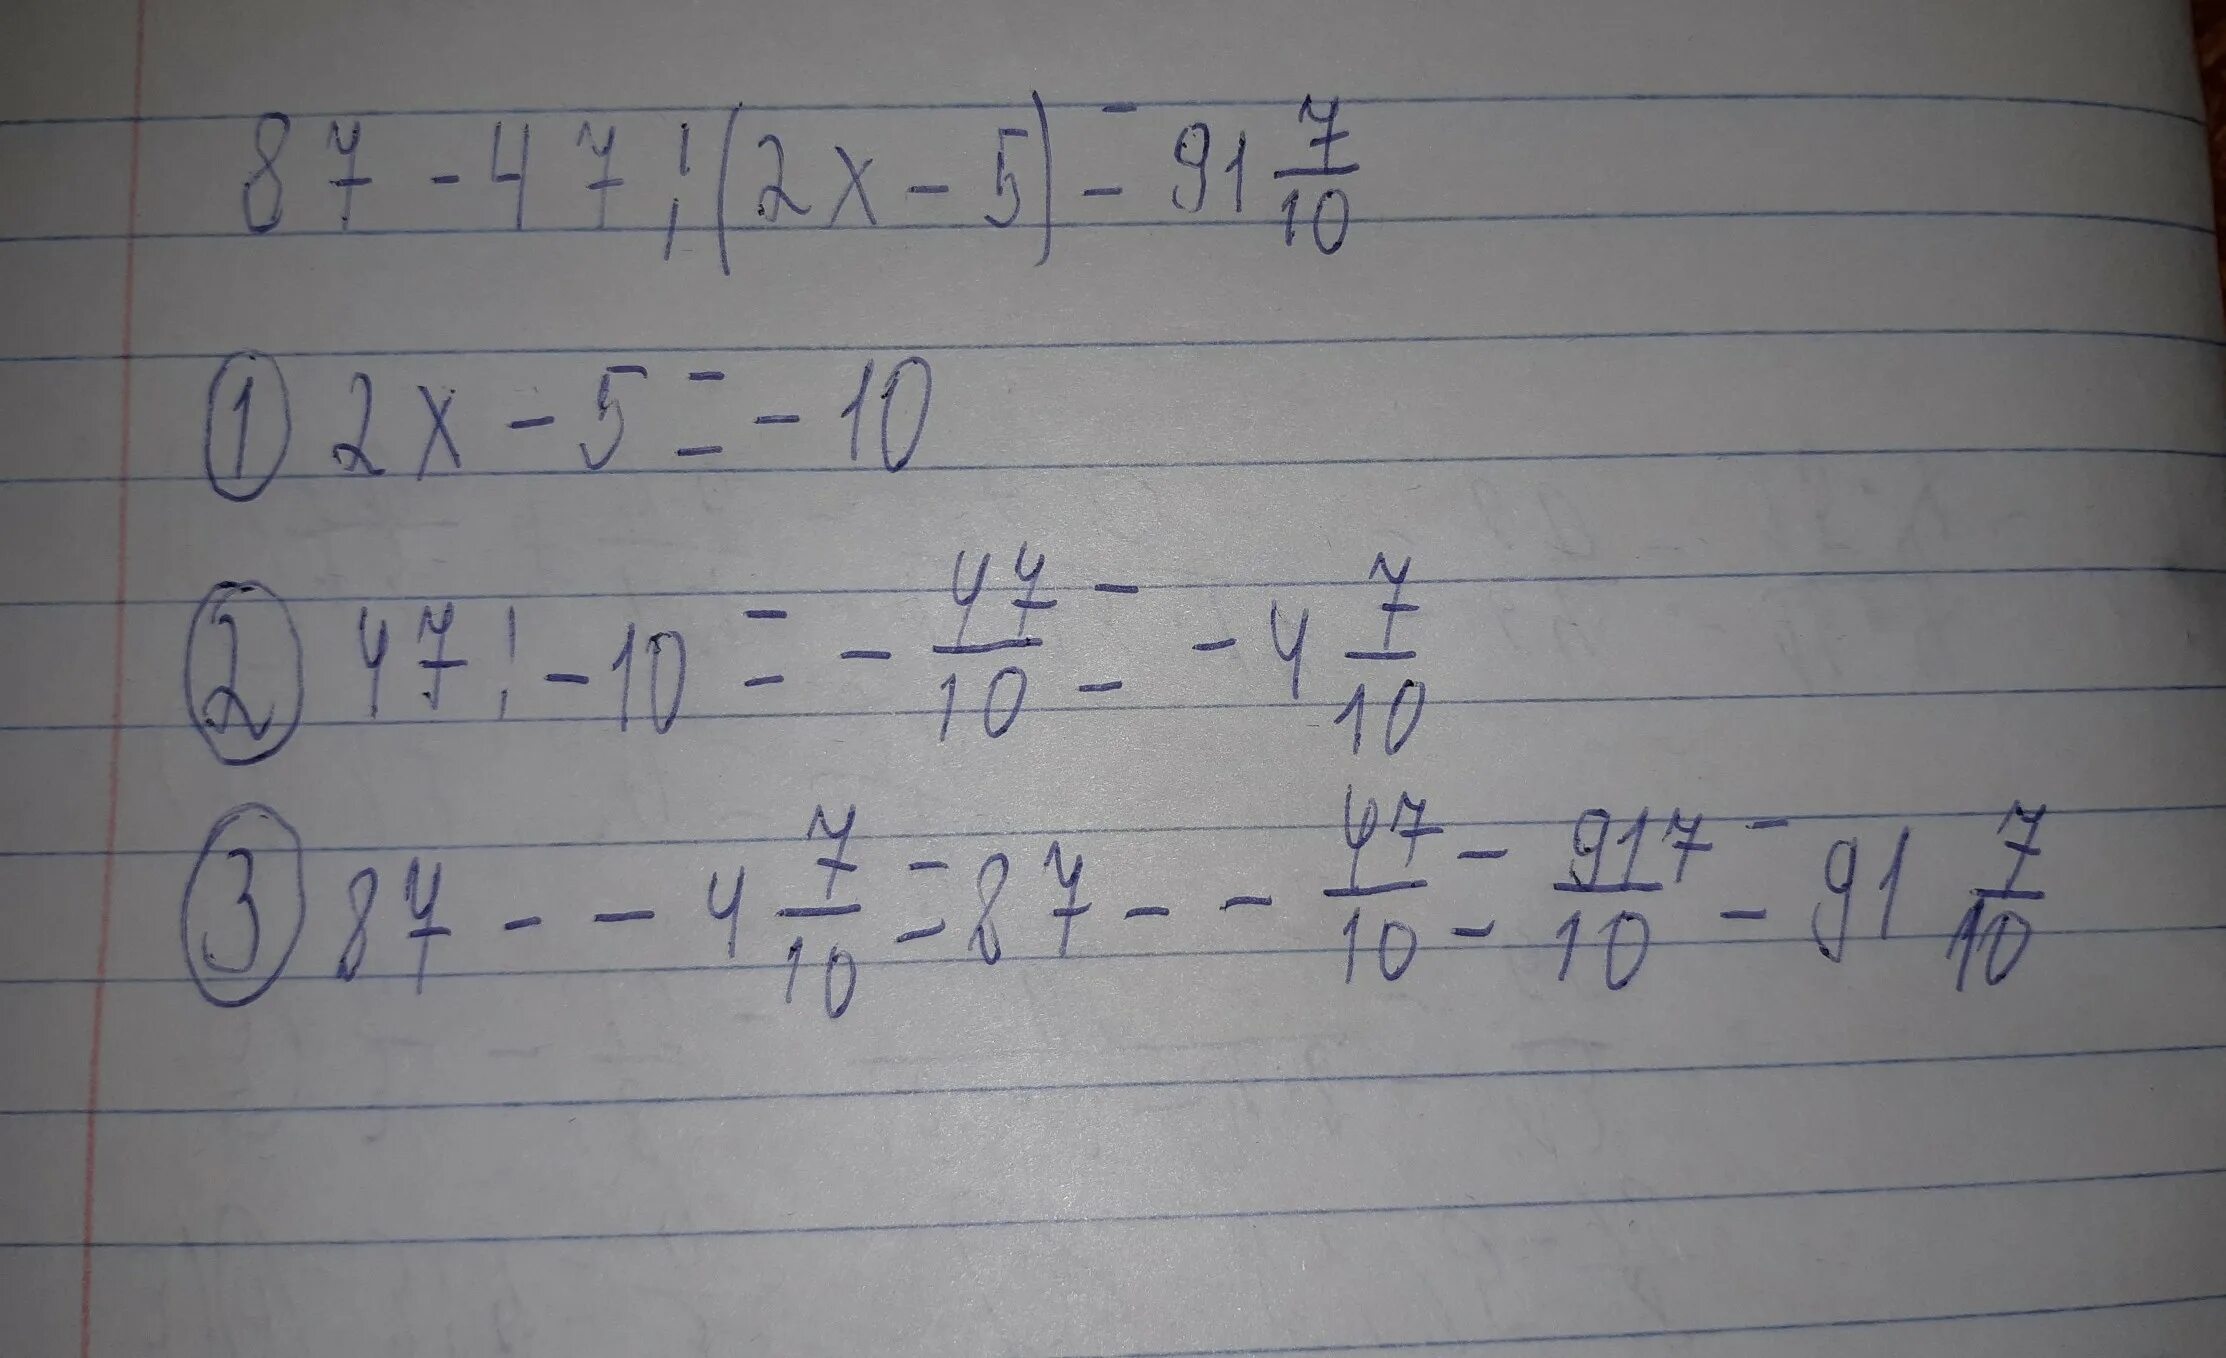 87 - 47 : (2x - 5) = 91 7/10
① 2x - 5 = -10
② 47 : -10 = - 47/10 = -4 7/10
③ 87 - - 4 7/10 = 87 - - 47/10 = 917/10 = 91 7/10